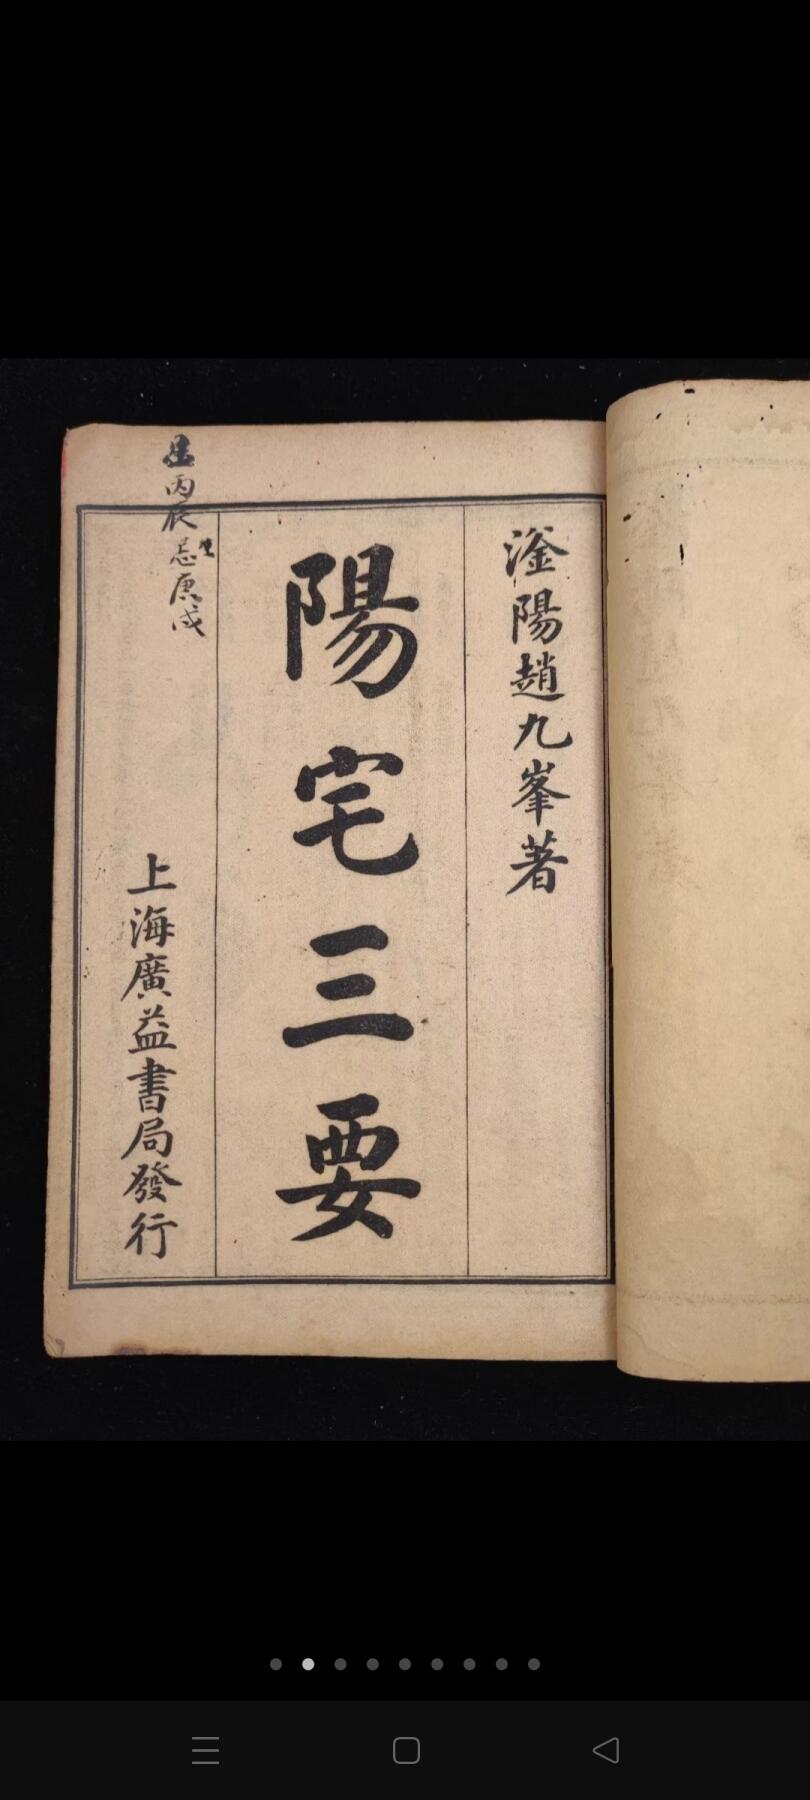 滏陽趙九峯著
陽宅三要
上海廣益書局發行
丙辰
忌庚戌